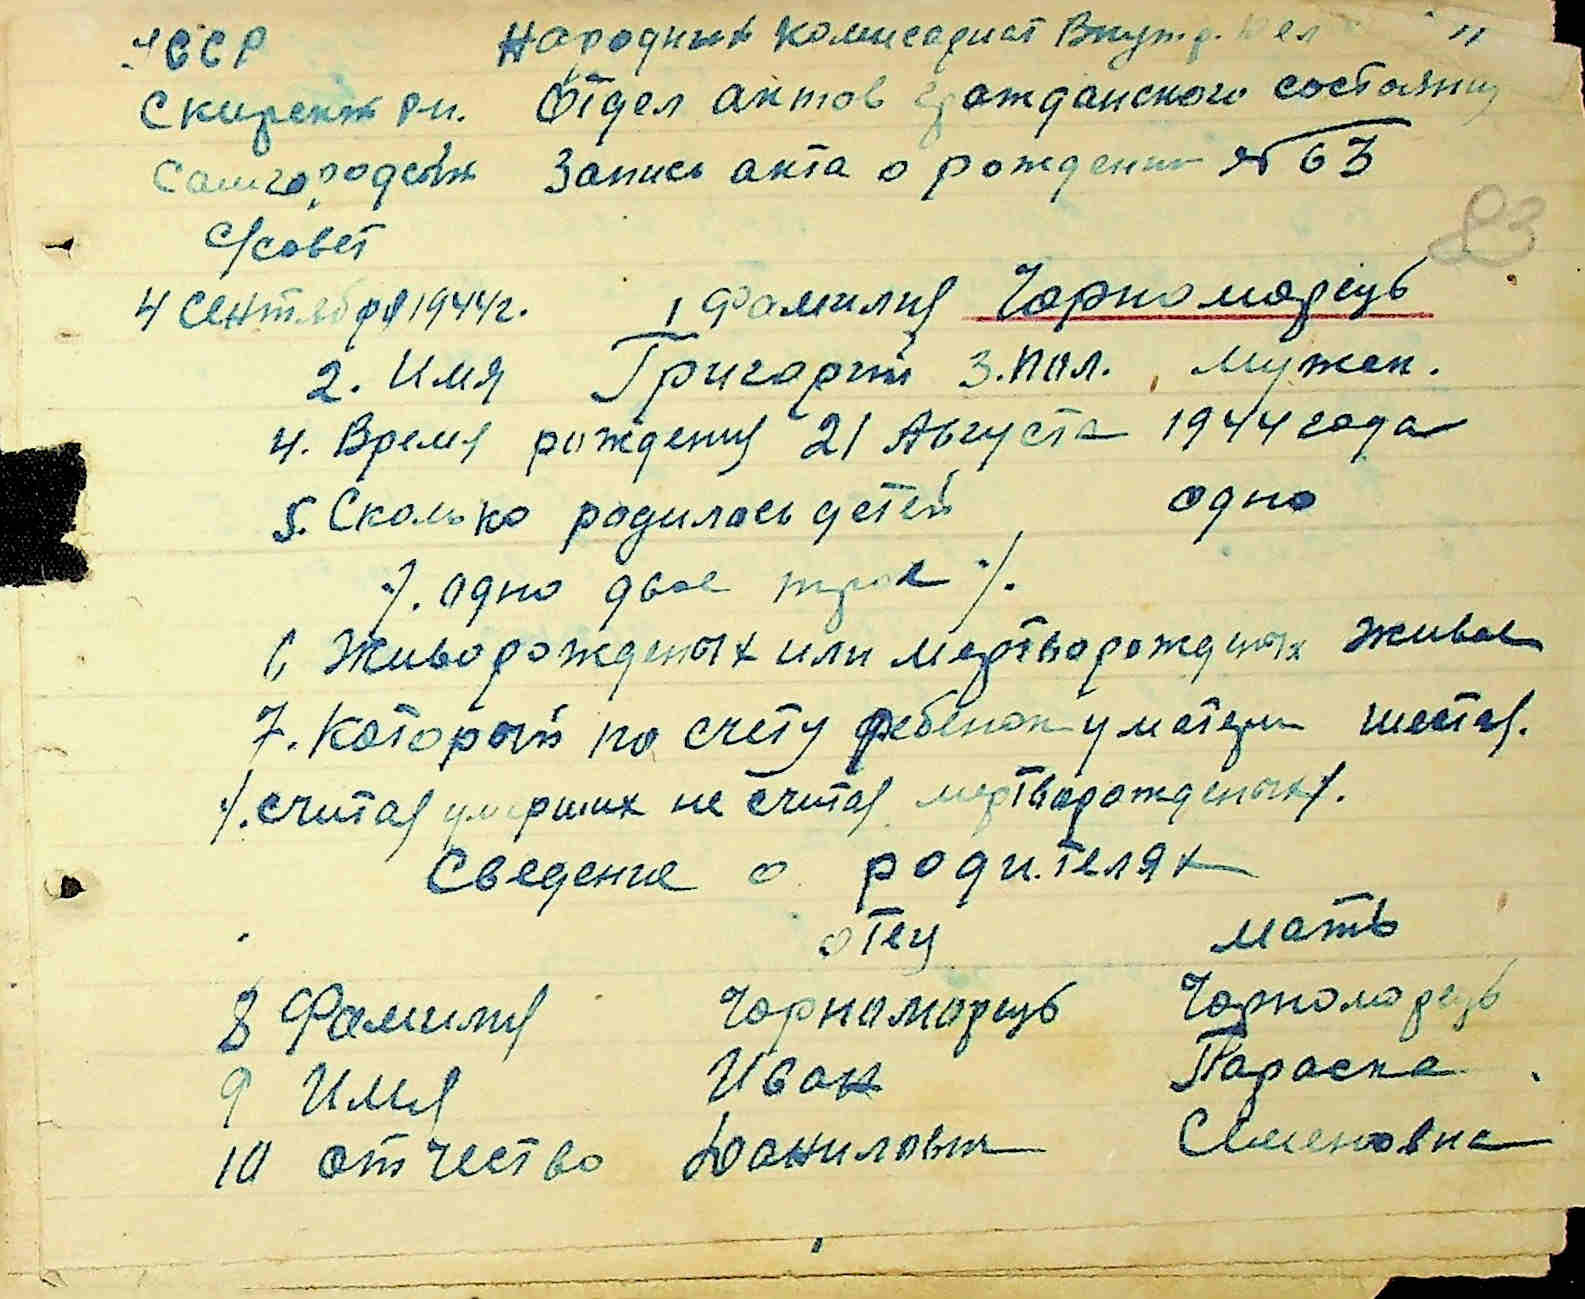 УССР Народных комисариат Внутр. Дел
Скиренж рн. Отдел актов гражданского состояния
Самгородськ Запись акта о рождении № 63
с/совет
83
4 Сентября 1944 г. 1 Фамилия Чорноморець
2. Имя Григорий 3. пол. мужск.
4. Время рождения 21 Августа 1944 года
5. Сколько родилось детей одно
/. одно двое трое /.
6 Живорожденых или мертворожденых живое
7. Который по счету ребенок у матери шестая.
/. считая умерших не считая мертворожденых /.
Сведение о родителях
отец мать
8 Фамилия Чорноморець Чорноморець
9 Имя Иван Параска
10 отчество Данилович Семеновна